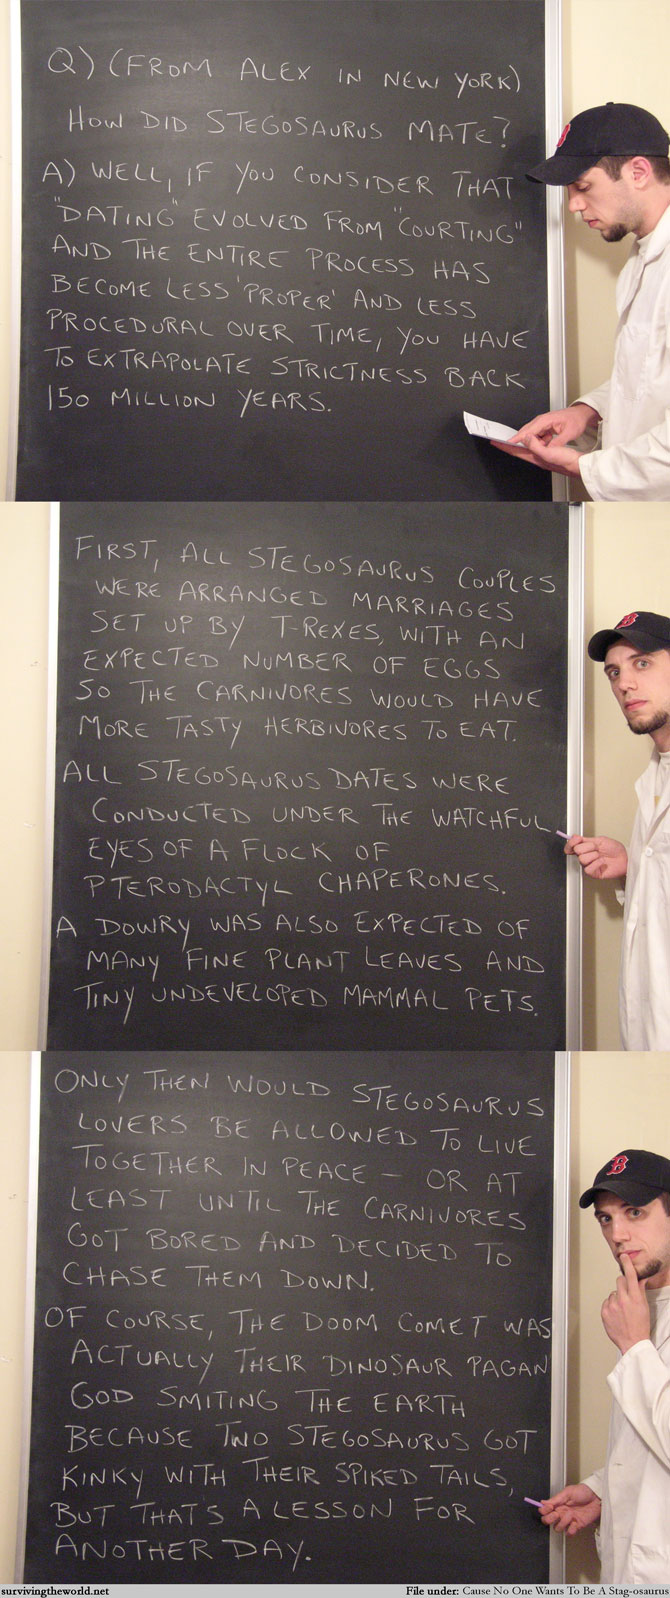 Q) (FROM ALEX IN NEW YORK)
HOW DID STEGOSAURUS MATE?
A) WELL, IF YOU CONSIDER THAT
"DATING" EVOLVED FROM "COURTING"
AND THE ENTIRE PROCESS HAS
BECOME LESS 'PROPER' AND LESS
PROCEDURAL OVER TIME, YOU HAVE
TO EXTRAPOLATE STRICTNESS BACK
150 MILLION YEARS.
FIRST, ALL STEGOSAURUS COUPLES
WERE ARRANGED MARRIAGES
SET UP BY T-REXES, WITH AN
EXPECTED NUMBER OF EGGS
SO THE CARNIVORES WOULD HAVE
MORE TASTY HERBIVORES TO EAT.
ALL STEGOSAURUS DATES WERE
CONDUCTED UNDER THE WATCHFUL
EYES OF A FLOCK OF
PTERODACTYL CHAPERONES.
A DOWRY WAS ALSO EXPECTED OF
MANY FINE PLANT LEAVES AND
TINY UNDEVELOPED MAMMAL PETS.
ONLY THEN WOULD STEGOSAURUS
LOVERS BE ALLOWED TO LIVE
TOGETHER IN PEACE - OR AT
LEAST UNTIL THE CARNIVORES
GOT BORED AND DECIDED TO
CHASE THEM DOWN.
OF COURSE, THE DOOM COMET WAS
ACTUALLY THEIR DINOSAUR PAGAN
GOD SMITING THE EARTH
BECAUSE TWO STEGOSAURUS GOT
KINKY WITH THEIR SPIKED TAILS,
BUT THAT'S A LESSON FOR
ANOTHER DAY.
B
survivingtheworld.net
File under: Cause No One Wants To Be A Stag-osaurus